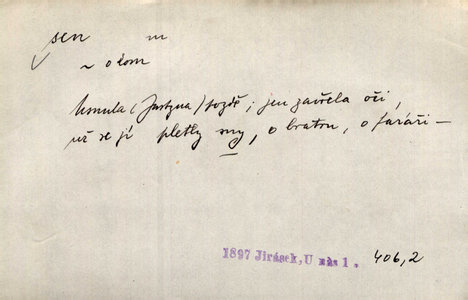 sen m
~ o kom
Usnula (Justyna) pozdě; jen zavřela oči,
už se jí pletly sny, o bratru, o faráři —
1897 Jirásek, U nás 1. 406,2